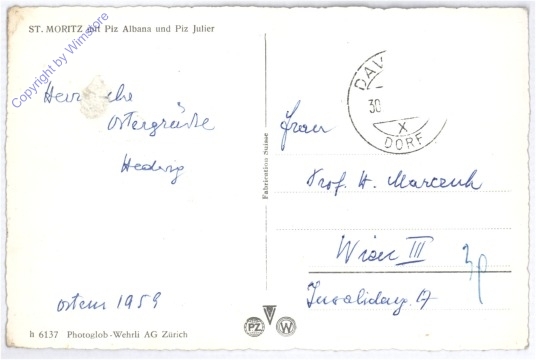 ST. MORITZ mit Piz Albana und Piz Julier
Copyright by Wimstore
Herzliche
Ostergrüße
Hedwig
Ostern 1959
h 6137 Photoglob-Wehrli AG Zürich
Fabrication Suisse
PZ W
DAV
30
X
DORF
Frau
Prof. H. Marcenk
Wien III
Invalideng. 17